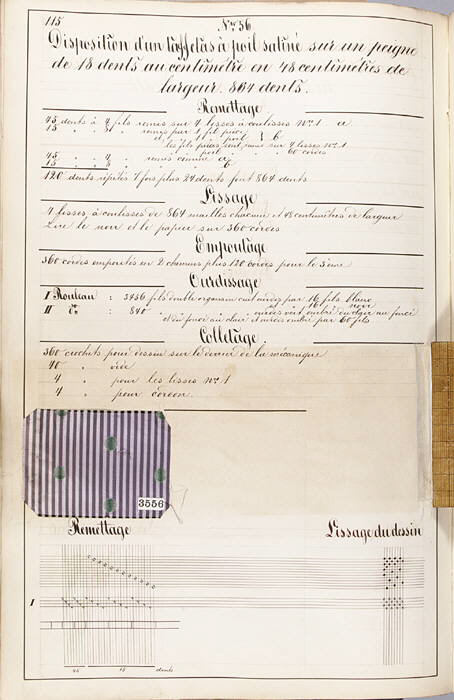 115
N.ro 56
Disposition d'un taffetas à poil satiné sur un peigne
de 18 dents au centimètre en 48 centimètres de
largeur. 864 dents.
Remettage
45 dents à 4 fils remis sur 4 lisses à coulisses N.ro 1 a
15 " 
les fils pièces sont remis sur 4 lisses N.ro 1
" poil " 60 cordes
45 " 4 " remis comme a
15 " b
120 dents répétés 7 fois plus 24 dents font 864 dents
Lissage
4 lisses à coulisses de 864 mailles chacune et 48 centimètres de largeur
Lire le noir et le papier sur 360 cordes
Empoutage
360 cordes empoutés en 2 chemins plus 120 cordes pour le 3ème
Ourdissage
I Rouleau : 3456 fils double organsin cuit ourdis par 16 fils blanc
et 16 " noir
II d.o : 840 " ourdis vert ombré du clair au foncé
et du foncé au clair et ourdis ombré par 60 fils
Colletage
360 crochets pour dessin sur le devier de la mécanique
40 " vide
4 " pour les lisses N.ro 1
4 " pour cordon
3556
Remettage
Lissage du dessin
I
45
15
dents